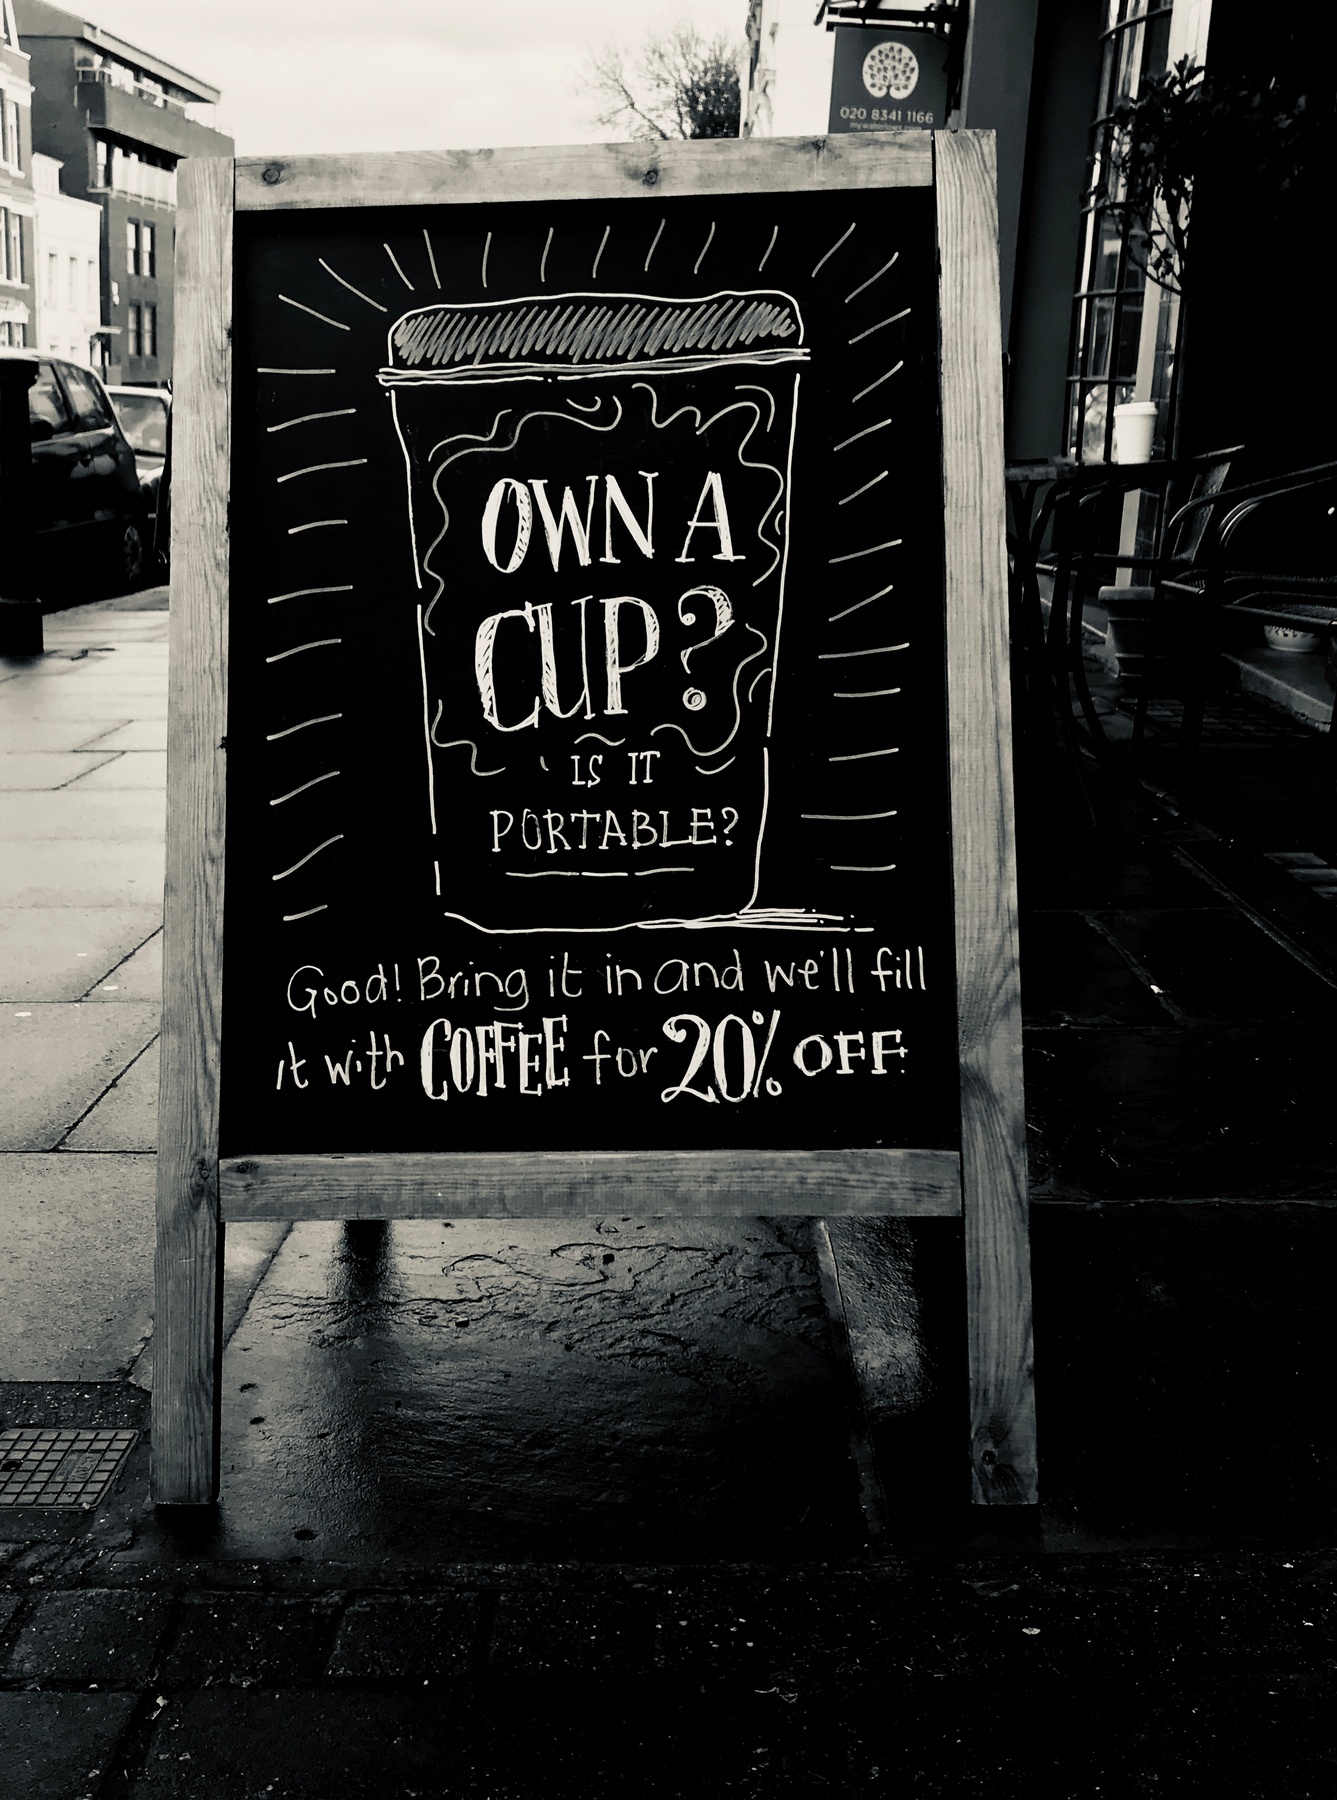 020 8341 1166
OWN A
CUP?
IS IT
PORTABLE?
Good! Bring it in and we'll fill
it with COFFEE for 20% OFF